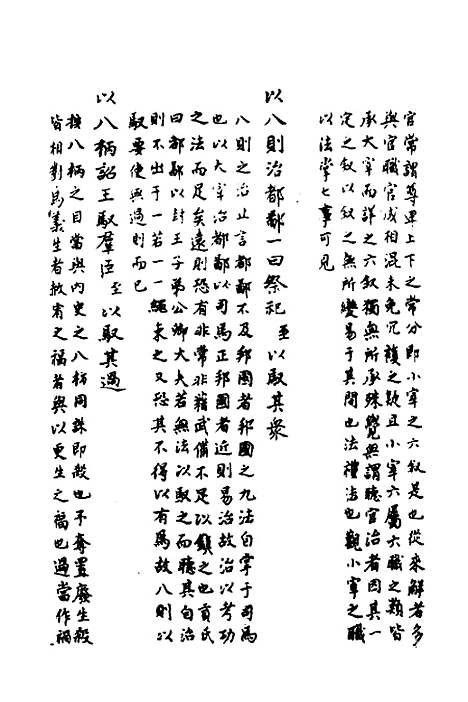 官常謂尊卑上下之常分即小宰之六叙是也從來解者多
與官職官成相混未免冗複之疑且小宰六屬六職之類皆
承大宰而詳之六叙獨無所承殊覺無謂聽官治者因其一
定之叙以叙之無所變易于其間也法禮法也觀小宰之職
以法掌七事可見
以八則治都鄙一曰祭祀至以馭其衆
八則之治止言都鄙不及邦國者邦國之九法自掌于司馬
也以大宰治都鄙以司馬正邦國者近則易治故治以考功
之法而足矣遠則恐有非常非藉武備不足以鎮之也貢氏
曰都鄙以封王子弟公卿大夫若無法以馭之而聽其自治
則不出于一若一一繩束之又恐其不得以有爲故八則以
馭要使無過則而已
以八柄詔王馭羣臣至以馭其過
按八柄之目當與内史之八柄同誅即殺也予奪置廢生殺
皆相對爲義生者赦宥之福者與以更生之福也過當作禍